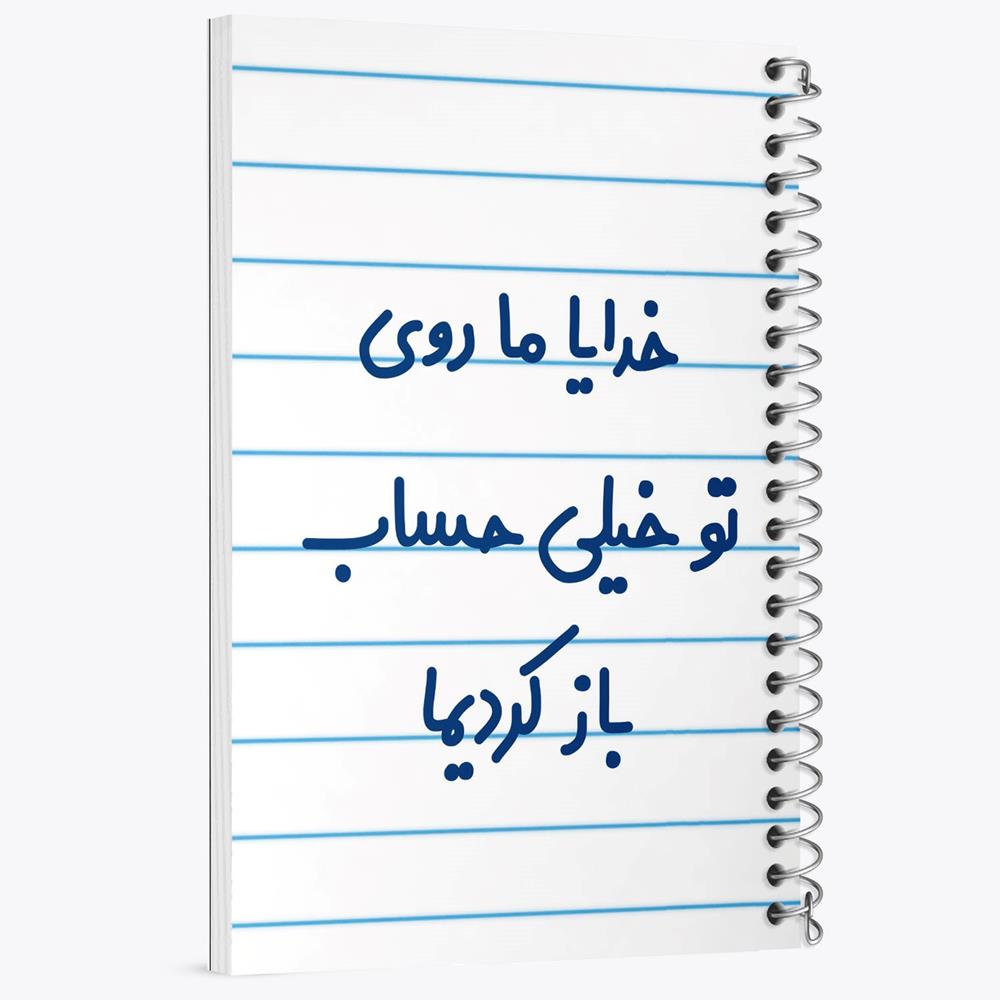 خدایا ما روی
تو خیلی حساب
باز کردیما